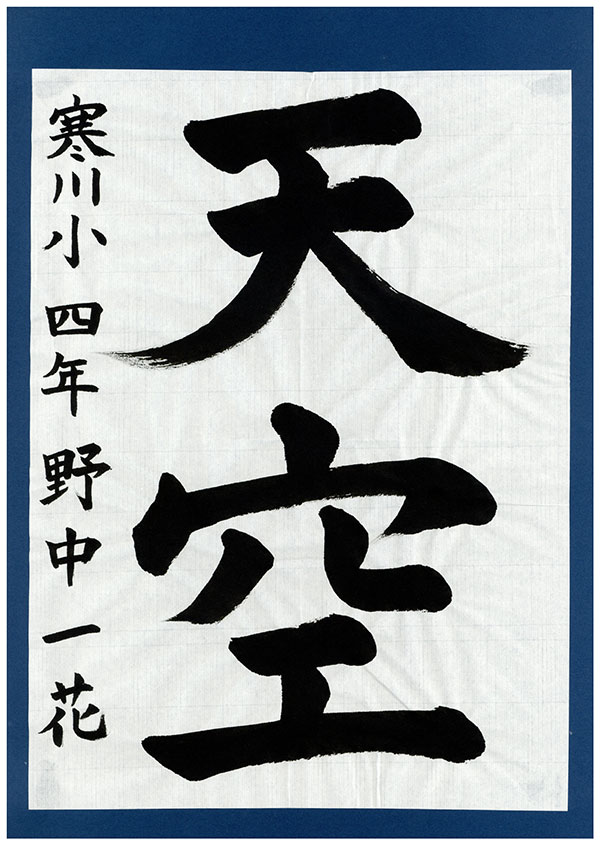 天空
寒川小 四年 野中一花